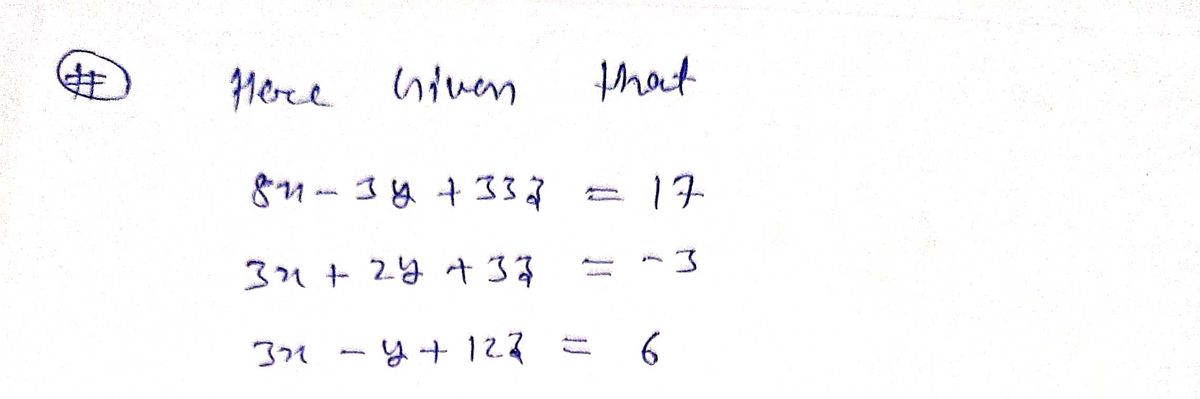 # Here Given that
8x - 3y + 33z = 17
3x + 2y + 3z = -3
3x - y + 12z = 6